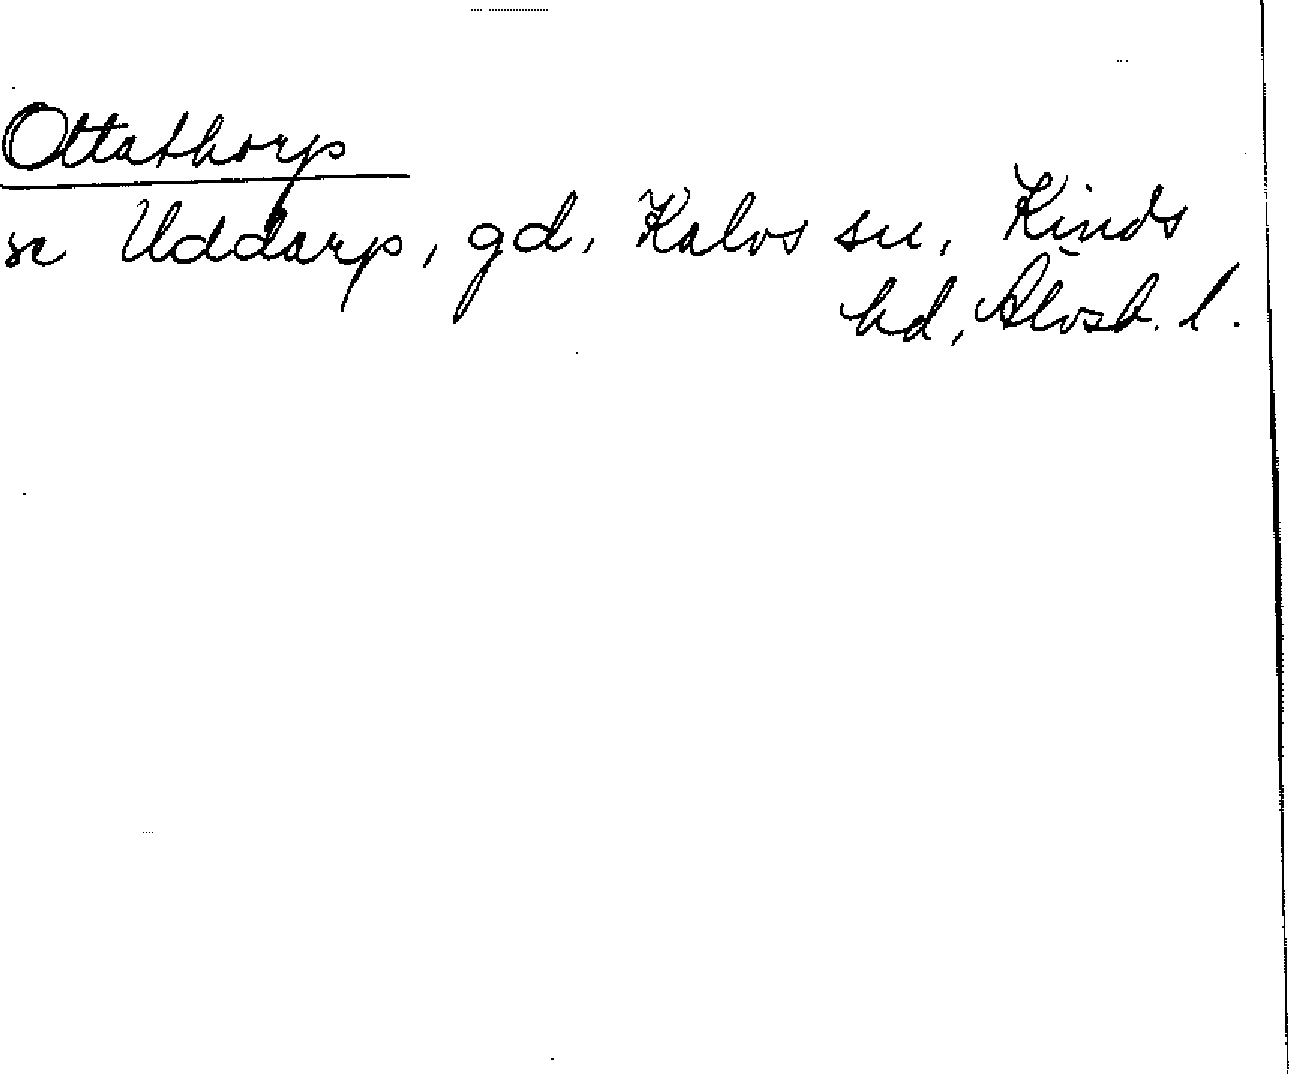 Ottathorp
se Uddarp, gd, Kalvs sn, Kinds
hd, Älvsb. l.